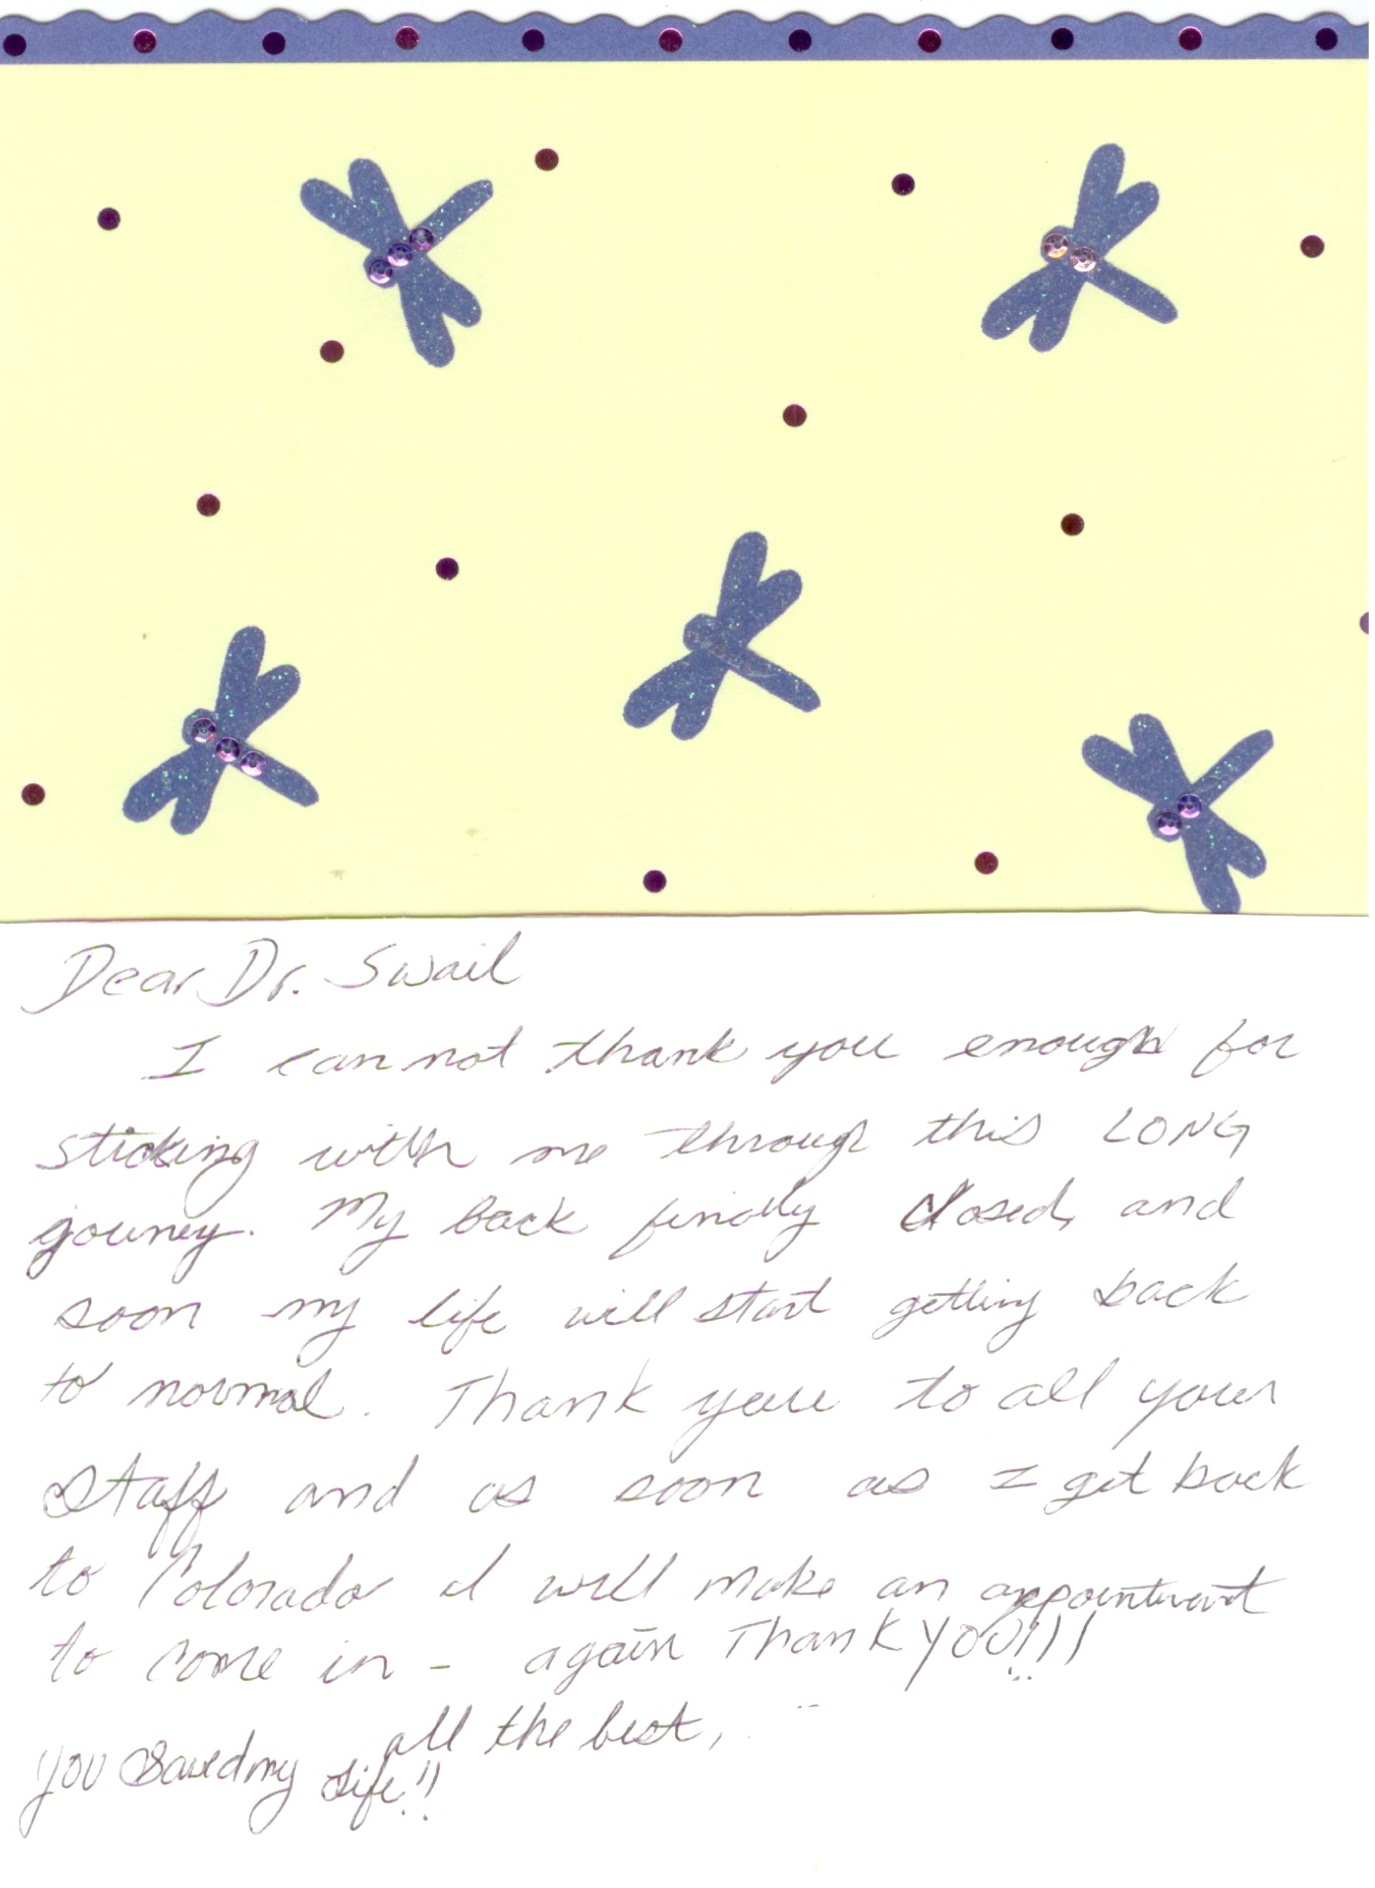 Dear Dr. Swail
I can not thank you enough for
sticking with me through this LONG
jouney. My back finally closed, and
soon my life will start getting back
to normal. Thank you to all your
staff and as soon as I get back
to Colorado I will make an appointment
to come in - again Thank YOU!!!
all the best,
You saved my life!!